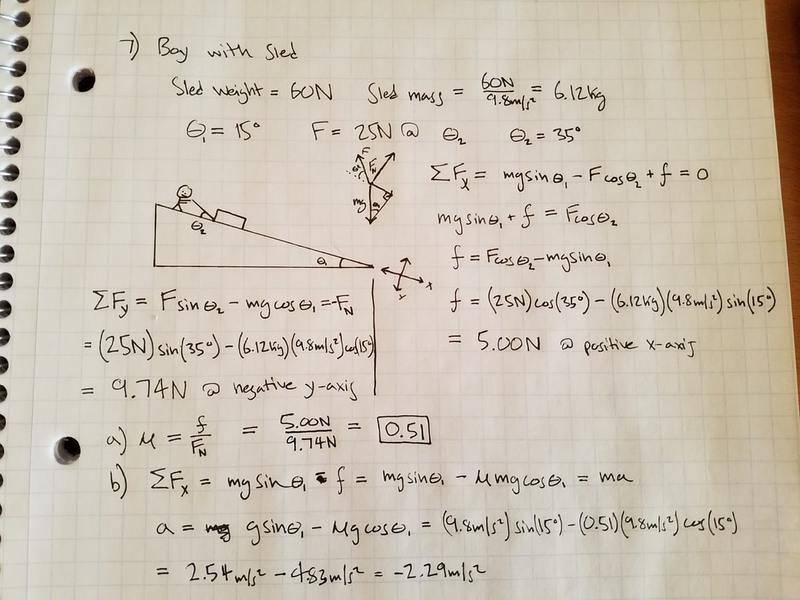 7) Boy with Sled
Sled weight = 60N   Sled mass = 60N/9.8m/s² = 6.12kg
θ₁ = 15°   F = 25N @ θ₂   θ₂ = 35°
F   F_N
θ₂   mg   θ₁
ΣFₓ = mgsinθ₁ - Fcosθ₂ + f = 0
mgsinθ₁ + f = Fcosθ₂
f = Fcosθ₂ - mgsinθ₁
f = (25N)cos(35°) - (6.12kg)(9.8m/s²)sin(15°)
= 5.00N @ positive x-axis
θ₂   θ₁   x   y
ΣF_y = Fsinθ₂ - mgcosθ₁ = -F_N
= (25N)sin(35°) - (6.12kg)(9.8m/s²)cos(15°)
= 9.74N @ negative y-axis
a) μ = f/F_N = 5.00N/9.74N = 0.51
b) ΣFₓ = mgsinθ₁ - f = mgsinθ₁ - μmgcosθ₁ = ma
a = gsinθ₁ - μgcosθ₁ = (9.8m/s²)sin(15°) - (0.51)(9.8m/s²)cos(15°)
= 2.54m/s² - 4.83m/s² = -2.29m/s²